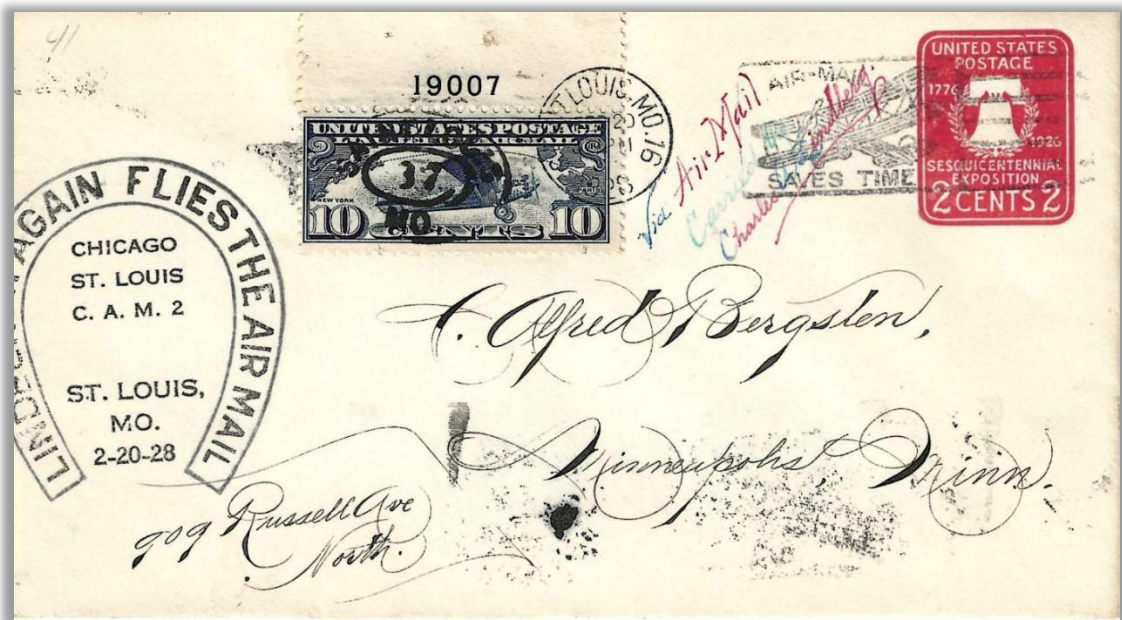 91
19007
UNITED STATES POSTAGE
LINDBERGH AIR MAIL
NEW YORK
PARIS
10 CENTS 10
37
MO.
ST. LOUIS, MO. 16
20
AIR MAIL
SAVES TIME
Via Air Mail
Carried by
Charles Lindbergh
UNITED STATES
POSTAGE
1776
1926
SESQUICENTENNIAL
EXPOSITION
2 CENTS 2
LINDBERGH AGAIN FLIES THE AIR MAIL
CHICAGO
ST. LOUIS
C. A. M. 2
ST. LOUIS,
MO.
2-20-28
C. Alfred Bergsten,
Minneapolis, Minn.
909 Russell Ave
North.